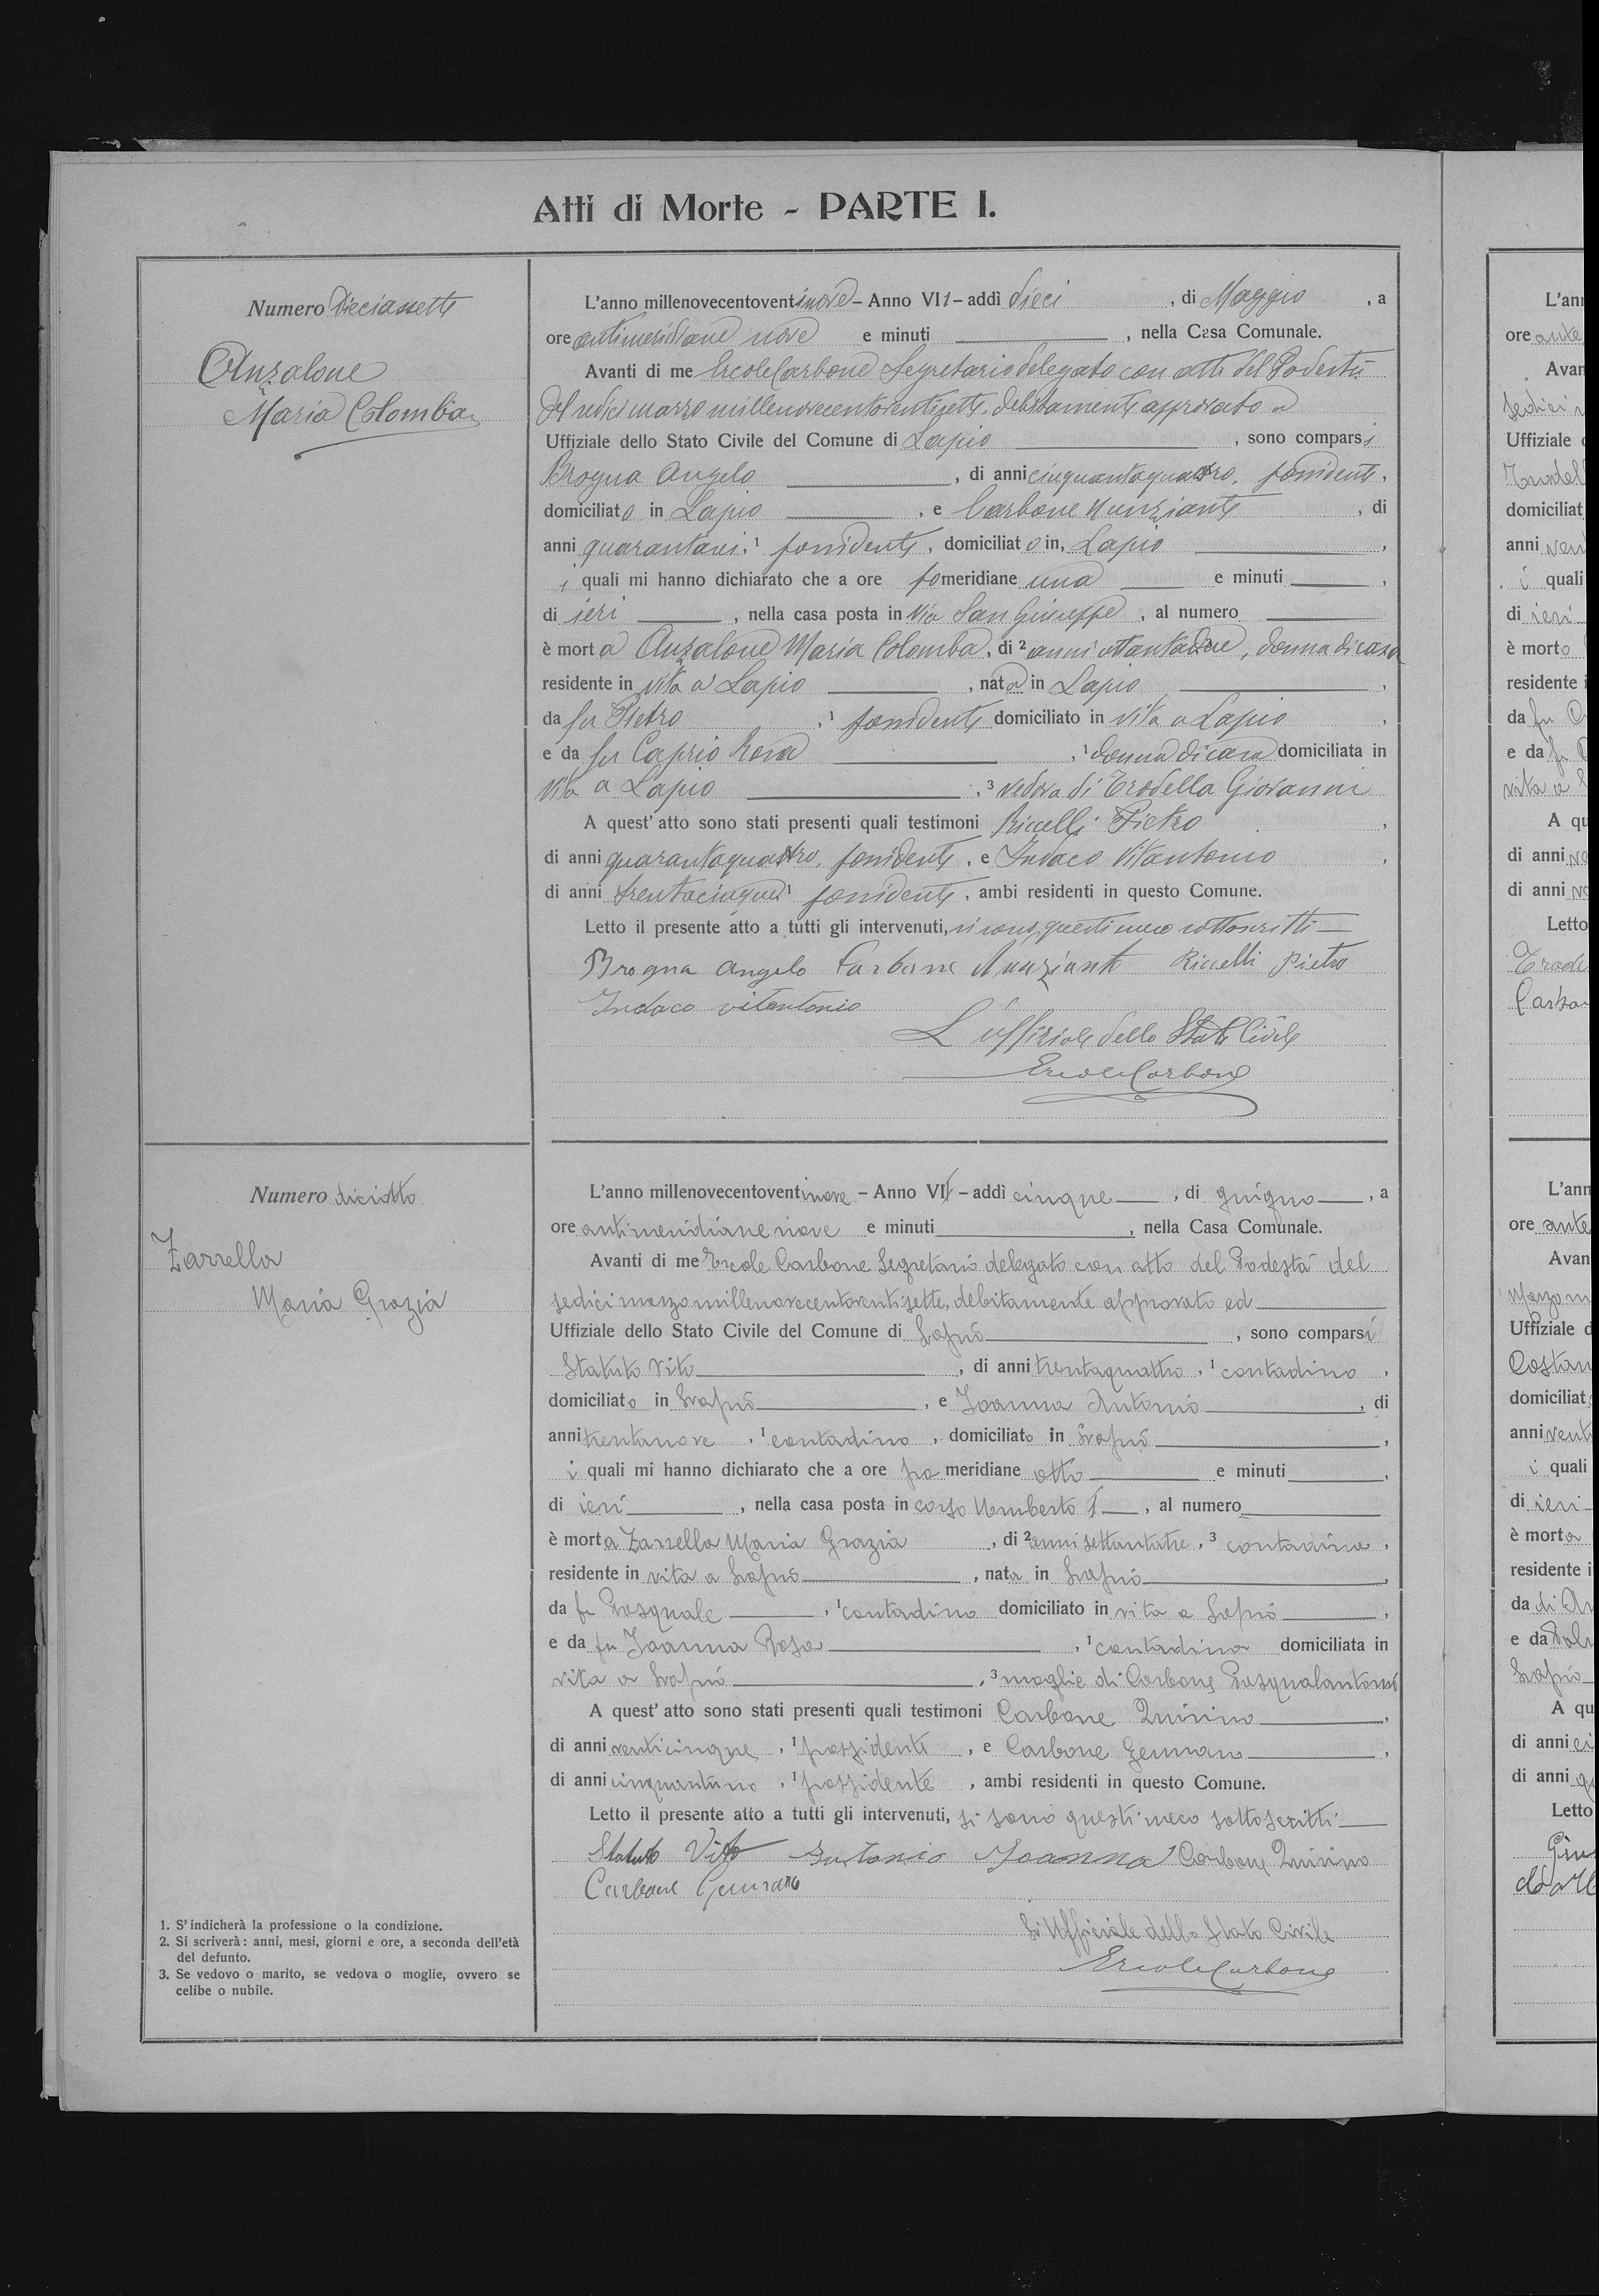 Atti di Morte - PARTE I.
Numero Diciassette
Anzalone
Maria Colomba
L'anno millenovecentoventinove - Anno VII - addì dieci, di Maggio, a
ore antimeridiane nove e minuti, nella Casa Comunale.
Avanti di me Ercole Carbone Segretario delegato con atto del Podestà
del sedici marzo millenovecentoventisette, debitamente approvato ed
Uffiziale dello Stato Civile del Comune di Lapio, sono comparsi
Brogna Angelo, di anni cinquantaquattro, possidente,
domiciliato in Lapio, e Carbone Nunziante, di
anni quarantasei, 1 possidente, domiciliato in, Lapio,
i quali mi hanno dichiarato che a ore pomeridiane una e minuti,
di ieri, nella casa posta in Via San Giuseppe, al numero
è morta Anzalone Maria Colomba, di 2 anni ottantadue, donna di casa
residente in vita a Lapio, nata in Lapio,
da fu Pietro, 1 possidente domiciliato in vita a Lapio,
e da fu Caprio Rosa, 1 donna di casa domiciliata in
vita a Lapio, 3 vedova di Trodella Giovanni
A quest' atto sono stati presenti quali testimoni Riccelli Pietro,
di anni quarantaquattro, possidente, e Indaco Vitantonio,
di anni trentacinque 1 possidente, ambi residenti in questo Comune.
Letto il presente atto a tutti gli intervenuti, si sono questi meco sottoscritti
Brogna Angelo Carbone Nunziante Riccelli Pietro
Indaco vitantonio
L'uffiziale dello Stato Civile
Ercole Carbone
Numero diciotto
Zarrella
Maria Grazia
L'anno millenovecentoventinove - Anno VII - addì cinque, di giugno, a
ore antimeridiane nove e minuti, nella Casa Comunale.
Avanti di me Ercole Carbone Segretario delegato con atto del Podestà del
sedici marzo millenovecentoventisette, debitamente approvato ed
Uffiziale dello Stato Civile del Comune di Lapio, sono comparsi
Statuto Vito, di anni trentaquattro, 1 contadino,
domiciliato in Lapio, e Ioanna Antonio, di
anni trentanove, 1 contadino, domiciliato in Lapio,
i quali mi hanno dichiarato che a ore pomeridiane otto e minuti,
di ieri, nella casa posta in corso Umberto I, al numero
è morta Zarrella Maria Grazia, di 2 anni settantatre, 3 contadina,
residente in vita a Lapio, nata in Lapio,
da fu Pasquale, 1 contadino domiciliato in vita a Lapio,
e da fu Ioanna Rosa, 1 contadina domiciliata in
vita a Lapio, 3 moglie di Carbone Pasqualantonio
A quest' atto sono stati presenti quali testimoni Carbone Quirino,
di anni venticinque, 1 possidente, e Carbone Gennaro,
di anni cinquantuno, 1 possidente, ambi residenti in questo Comune.
Letto il presente atto a tutti gli intervenuti, si sono questi meco sottoscritti
Statuto Vito Antonio Ioanna Carbone Quirino
Carbone Gennaro
L'Ufficiale dello Stato Civile
Ercole Carbone
1. S'indicherà la professione o la condizione.
2. Si scriverà: anni, mesi, giorni e ore, a seconda dell'età
del defunto.
3. Se vedovo o marito, se vedova o moglie, ovvero se
celibe o nubile.